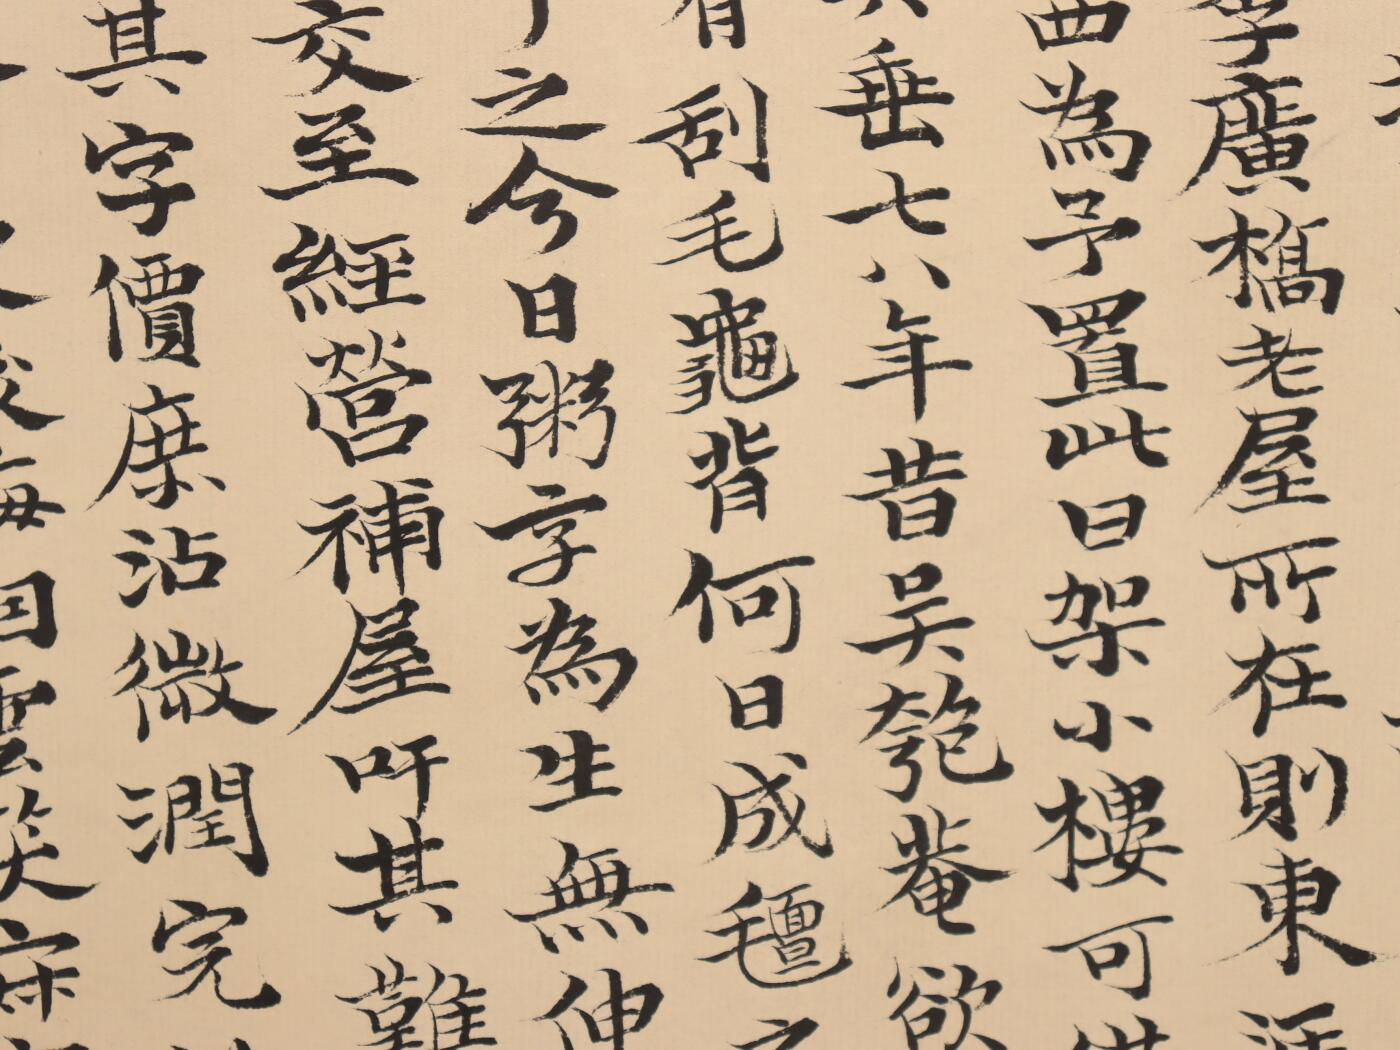 廣橋老屋所在則東
西為予置此曰架小樓可供
垂七八年昔吳匏菴欲
有刮毛龜背何日成氊之
之今日粥字為生無伸
交至經營補屋吁其難
其字價庶沾微潤完